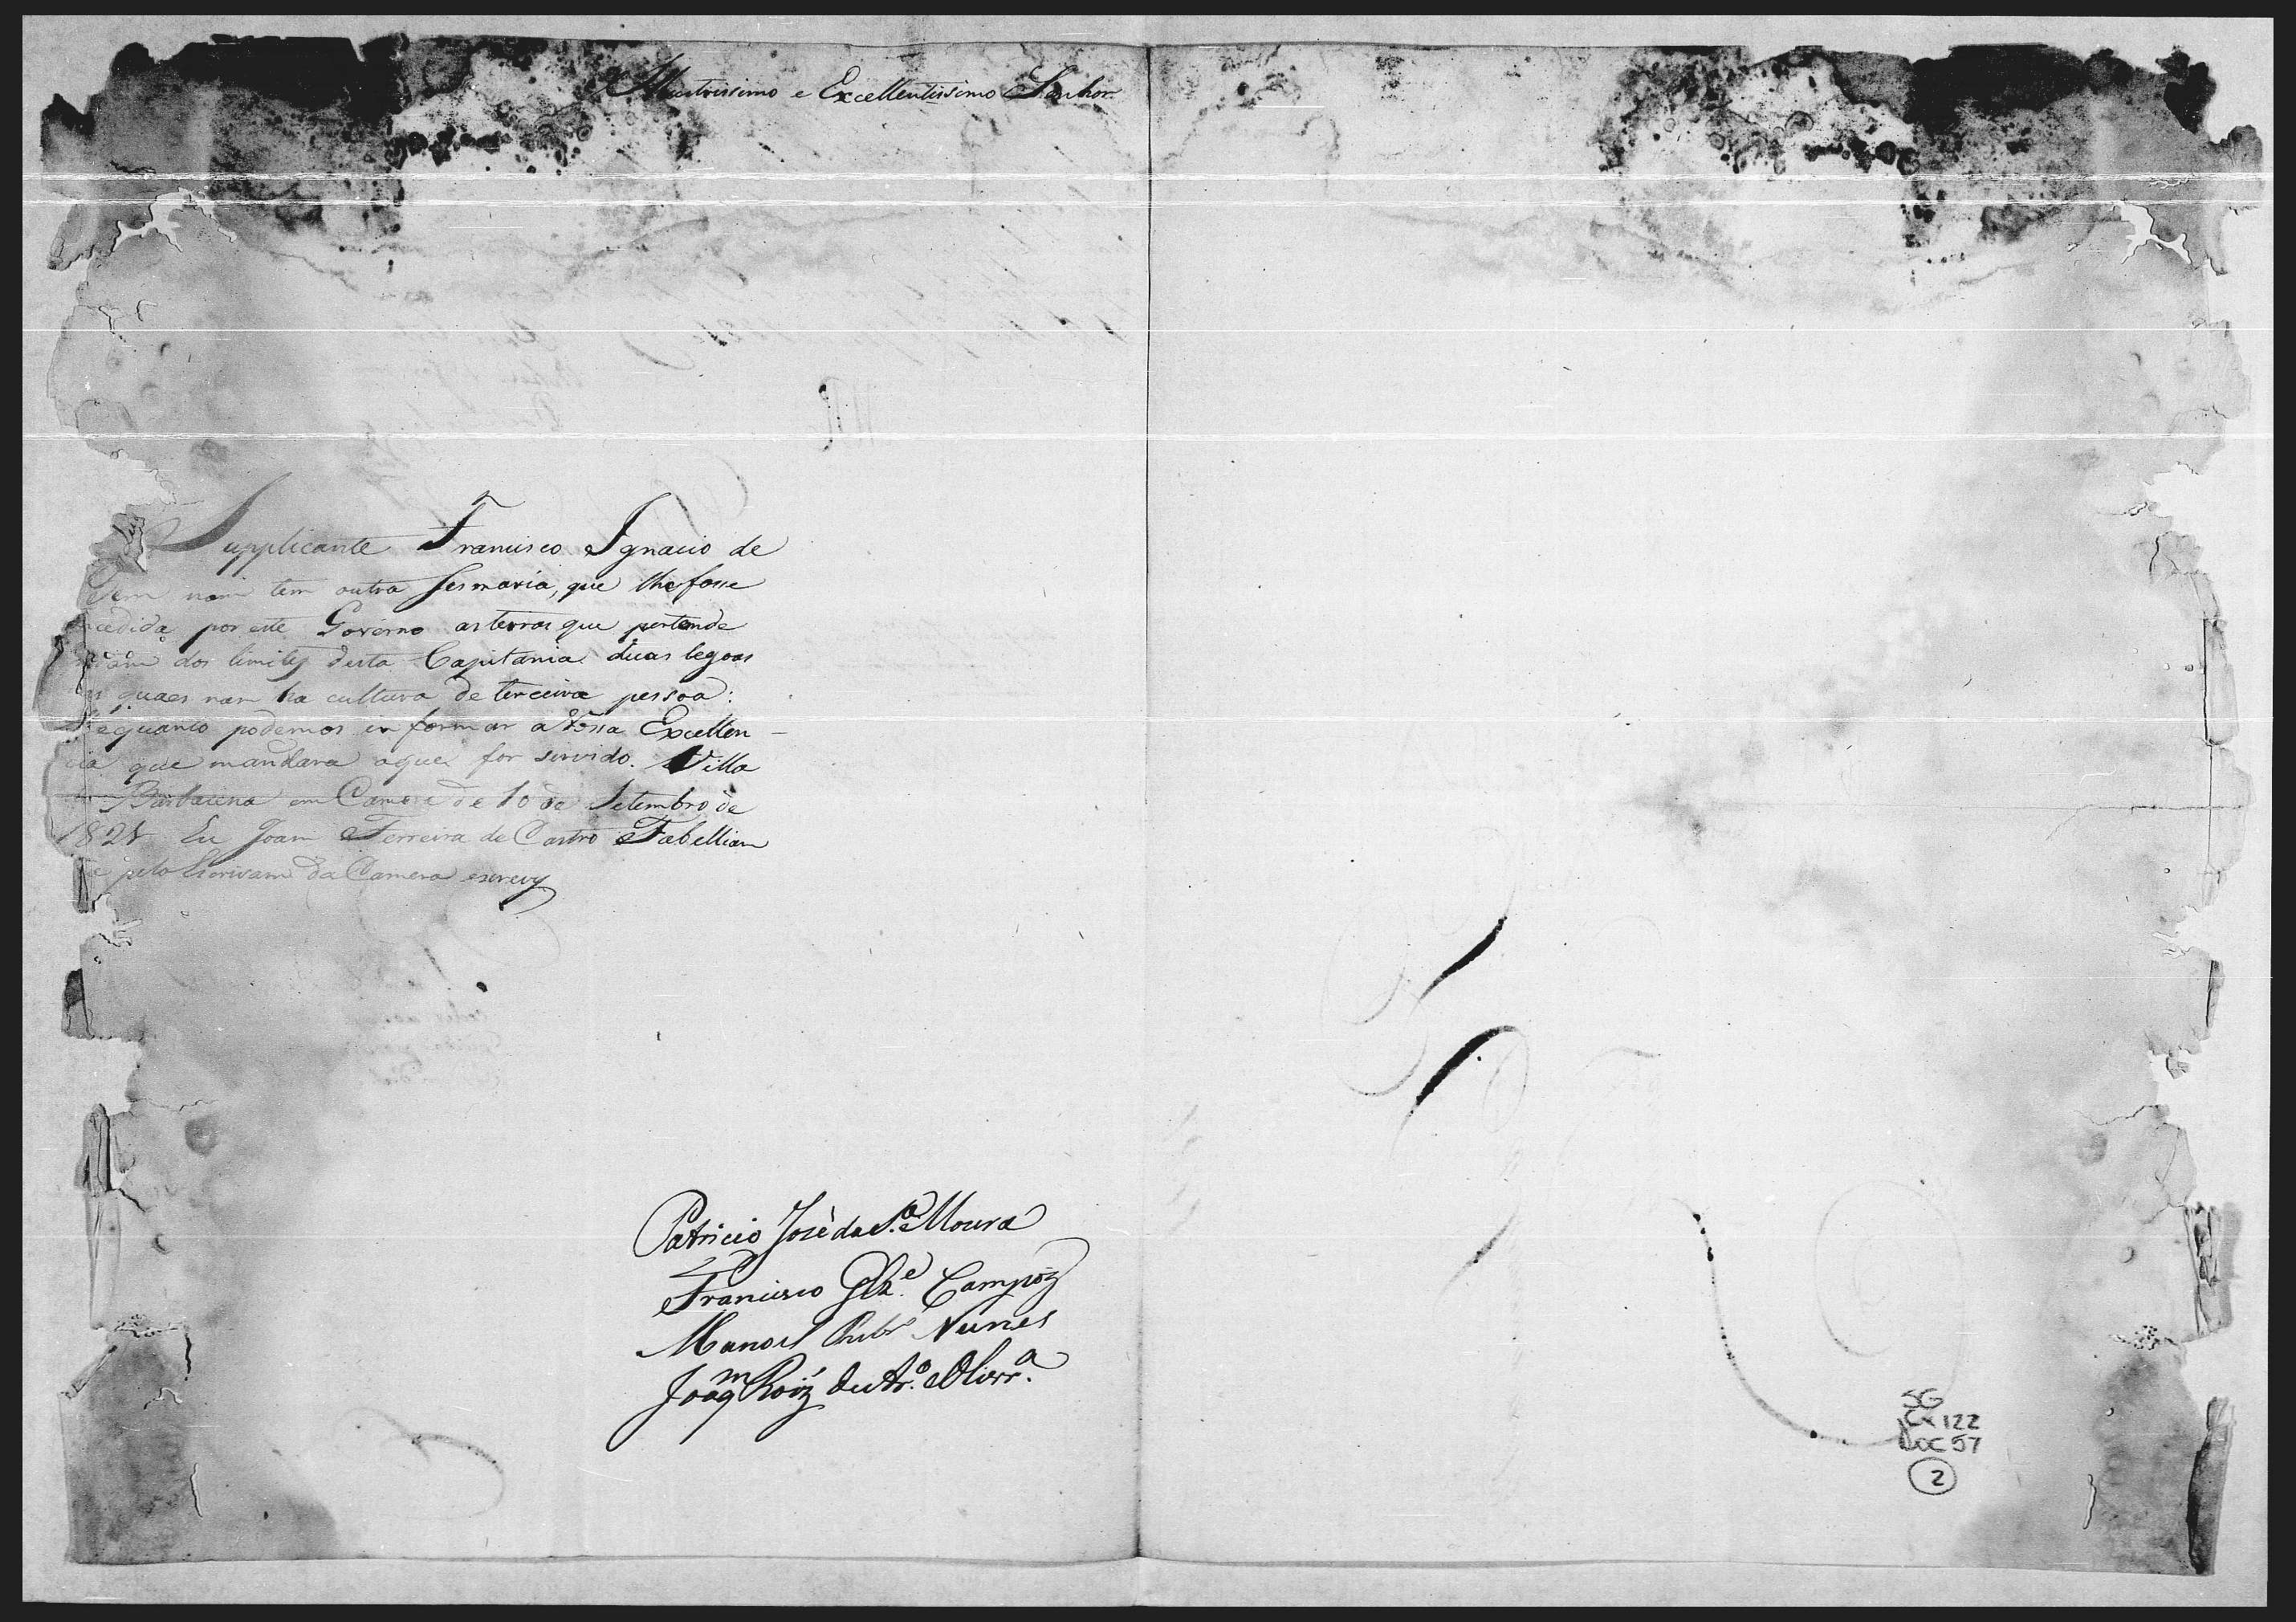 Illustrissimo e Excellentissimo Senhor
Supplicante Francisco Ignacio de
nam tem outra sesmaria, que lhe fosse
cedida por este Governo as terras que pertende
dos limites desta Capitania duas legoas
quaes nam ha cultura de terceira pessoa:
equanto podemos informar a Vossa Excellen-
cia que mandara oque for servido. Villa
Barbacena em Camera de 10 de Setembro de
Eu Joam Ferreira de Castro Tabelliam
pelo Escrivam da Camera escrevy
Patricio José da S.ª e Moura
Francisco Glz.e Campoz
Manoel Nunes
Joaqm Roiz de Ar.º e Olivr.ª
SG
Cx 122
DOC 57
2